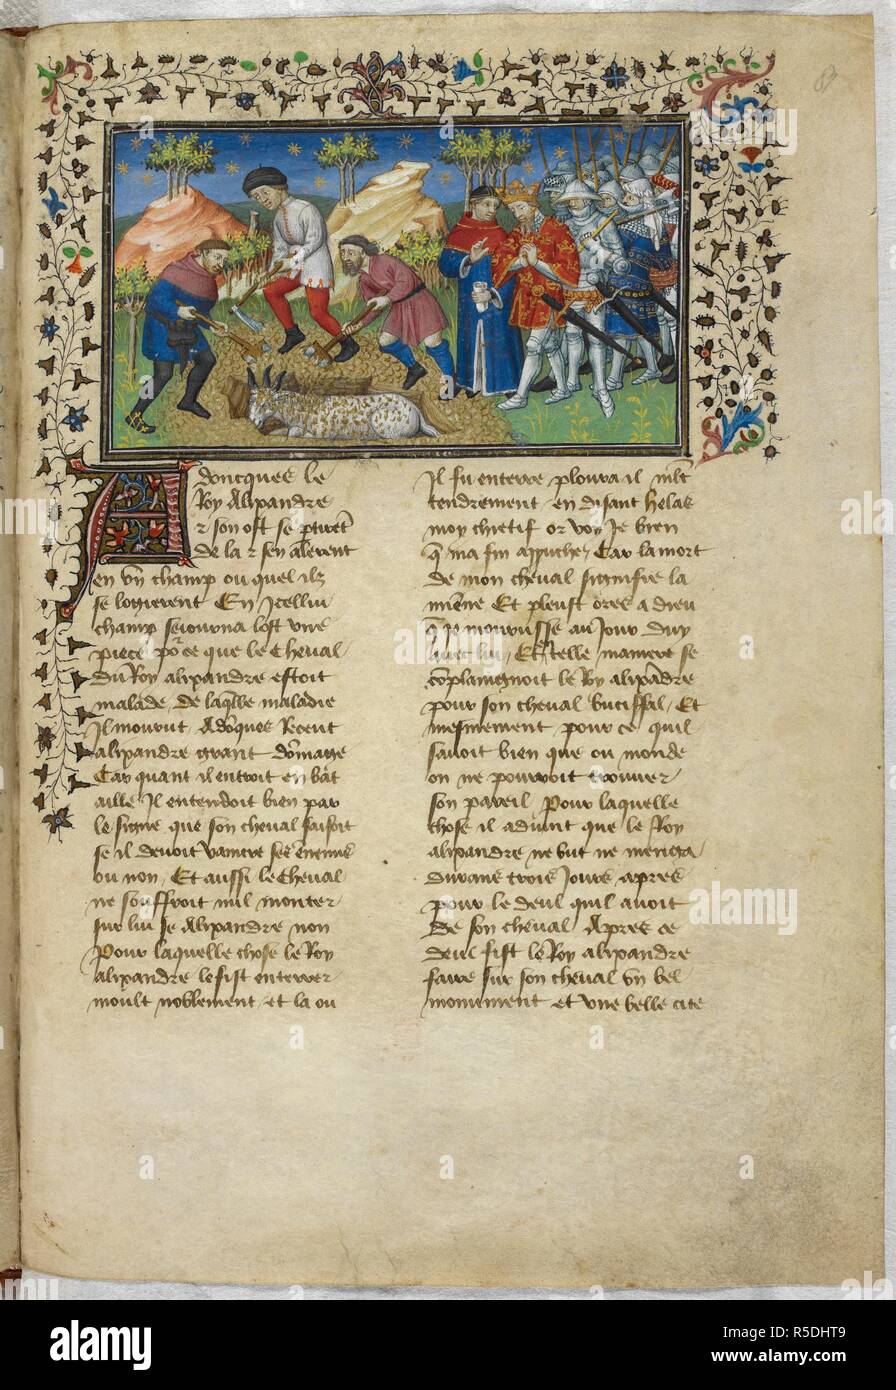 Adoncques le
Roy Alixandre
et son ost se ptiret
de la et sen alerent
en vng champ ou quel ilz
se logierent En Icellui
champ seiourna lost vne
piece po ce que le cheval
du Roy alixandre estoit
malade de laqlle maladie
Il mourut Adoques Recent
alixandre grant domage
Car quant il entroit en bat
aille Il entendoit bien par
le signe que son cheval faisoit
se il devoit vaincre ses enemis
ou non, Et aussi le cheval
ne souffroit nul monter
sur lui se Alixandre non
Pour laquelle chose le Roy
alixandre le fist enterrer
moult noblement et la ou
Il fu enterre ploura il mlt
tendrement en disant helas
moy chetif or voy Je bien
q ma fin approuche, Car la mort
de mon cheval signifie la
miene Et pleust ores a dieu
q Je mourusse au Jour duy
avec lui, Et telle maniere se
coplaingnoit le Roy alixadre
pour son cheval buciffal, Et
mesmement pour ce quil
savoit bien que ou monde
on ne pourroit trouver
son pareil Pour laquelle
chose il aduint que le Roy
alixandre ne but ne menga
durant trois Jours apres
pour le deul quil auoit
de son cheval Apres ce
deul fist le Roy alixandre
faire sur son cheval vn bel
monument et vne belle cite
alamy
Image ID: R5DHT9
www.alamy.com